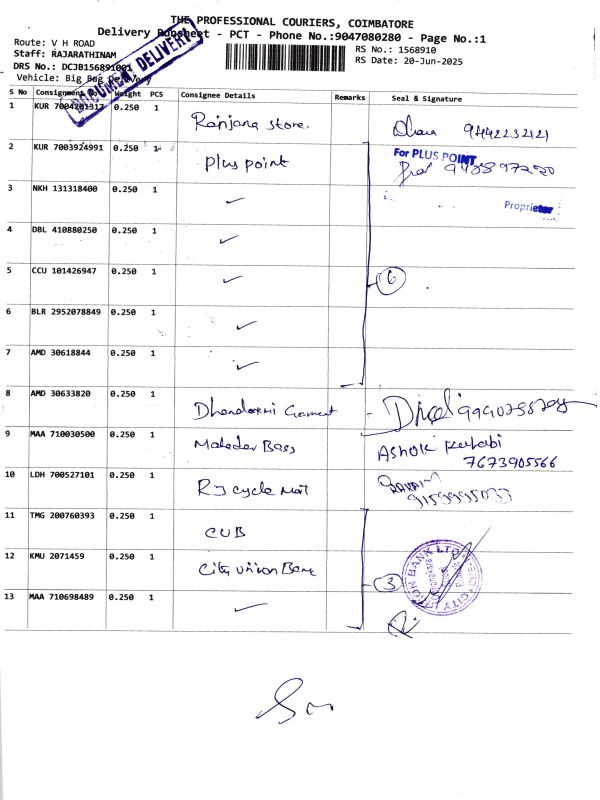 THE PROFESSIONAL COURIERS, COIMBATORE
Delivery Runsheet - PCT - Phone No.:9047080280 - Page No.:1
Route: V H ROAD
Staff: RAJARATHINAM
RS No.: 1568910
DRS No.: DCJB156891001
RS Date: 20-Jun-2025
Vehicle: Big Bag Delivery
DOCUMENT DELIVERY
S No Consignment No Weight PCS Consignee Details Remarks Seal & Signature
1 KUR 7004201317 0.250 1 Ranjana store.
2 KUR 7003924991 0.250 1 Plus point For PLUS POINT
3 NKH 131318400 0.250 1 ✓ Proprietor
4 DBL 410880250 0.250 1 ✓
5 CCU 101426947 0.250 1 ✓ 6
6 BLR 2952078849 0.250 1 ✓
7 AMD 30618844 0.250 1 ✓
8 AMD 30633820 0.250 1
9 MAA 710030500 0.250 1 Mahadev Bags ASHOK
7673905566
10 LDH 700527101 0.250 1 RJ cycle mart
11 TMG 200760393 0.250 1 CUB
12 KMU 2071459 0.250 1 City union Bank 3
CITY UNION BANK LTD
13 MAA 710698489 0.250 1 ✓